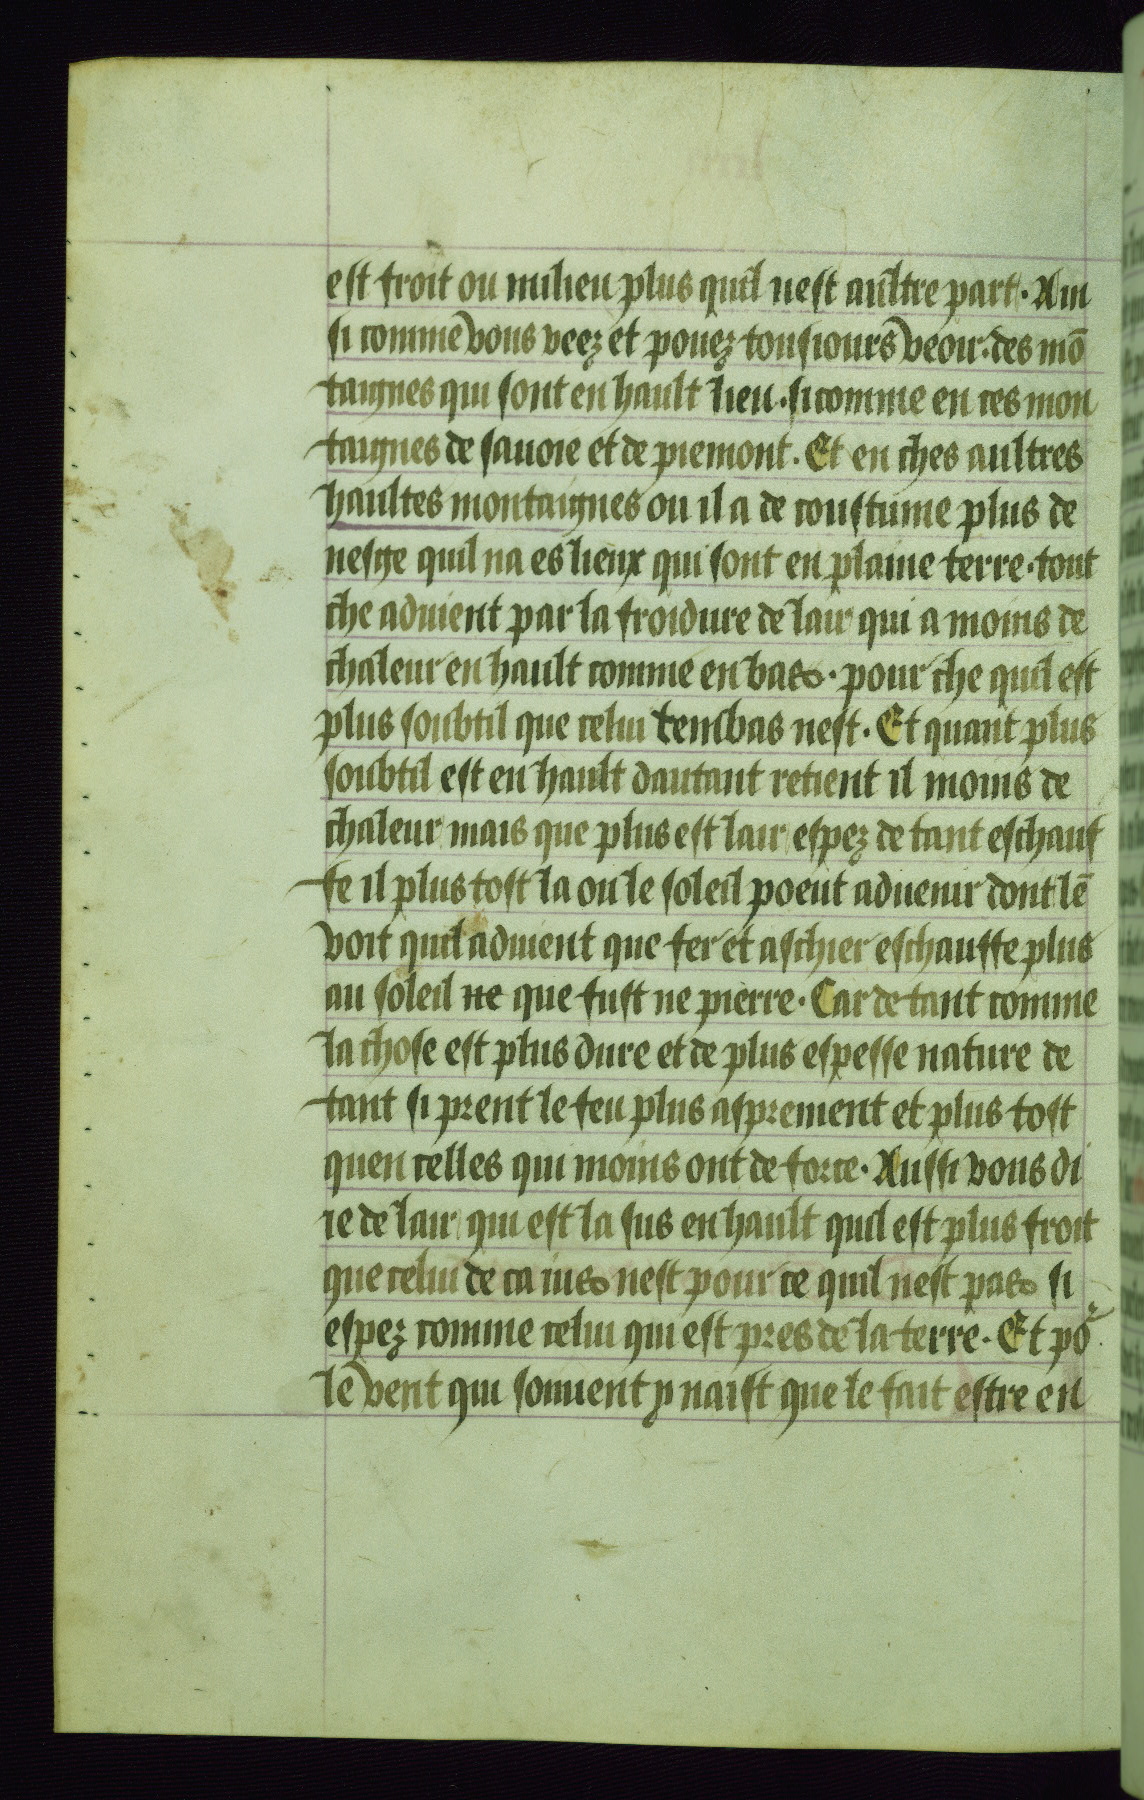 est froit ou milieu plus quil nest aultre part. Ain
si comme vous veez et pouez tousiours veoir. des mō
taignes qui sont en hault lieu. si comme en ces mon
taignes de sauoie et de piemont. Et en ches aultres
haultes montaignes ou il a de coustume plus de
nesge quil na es lieux qui sont en plaine terre. tout
che aduient par la froidure de lair qui a moins de
chaleur en hault comme en bas. pour che quil est
plus soubtil que celui bas nest. Et quant plus
soubtil est en hault dautant retient il moins de
chaleur mais que plus est lair espez de tant eschauf
fe il plus tost la ou le soleil poeut aduenir dont lē
voit quil aduient que fer et aschier eschauffe plus
au soleil ne que fust ne pierre. Car de tant comme
la chose est plus dure et de plus espesse nature de
tant si prent le feu plus asprement et plus tost
quen celles qui moins ont de force. Aussi vous di
ie de lair qui est la sus en hault quil est plus froit
que celui de ca ius nest pour ce quil nest pas si
espez comme celui qui est pres de la terre. Et po᷑
le vent qui souuent y naist que le fait estre en